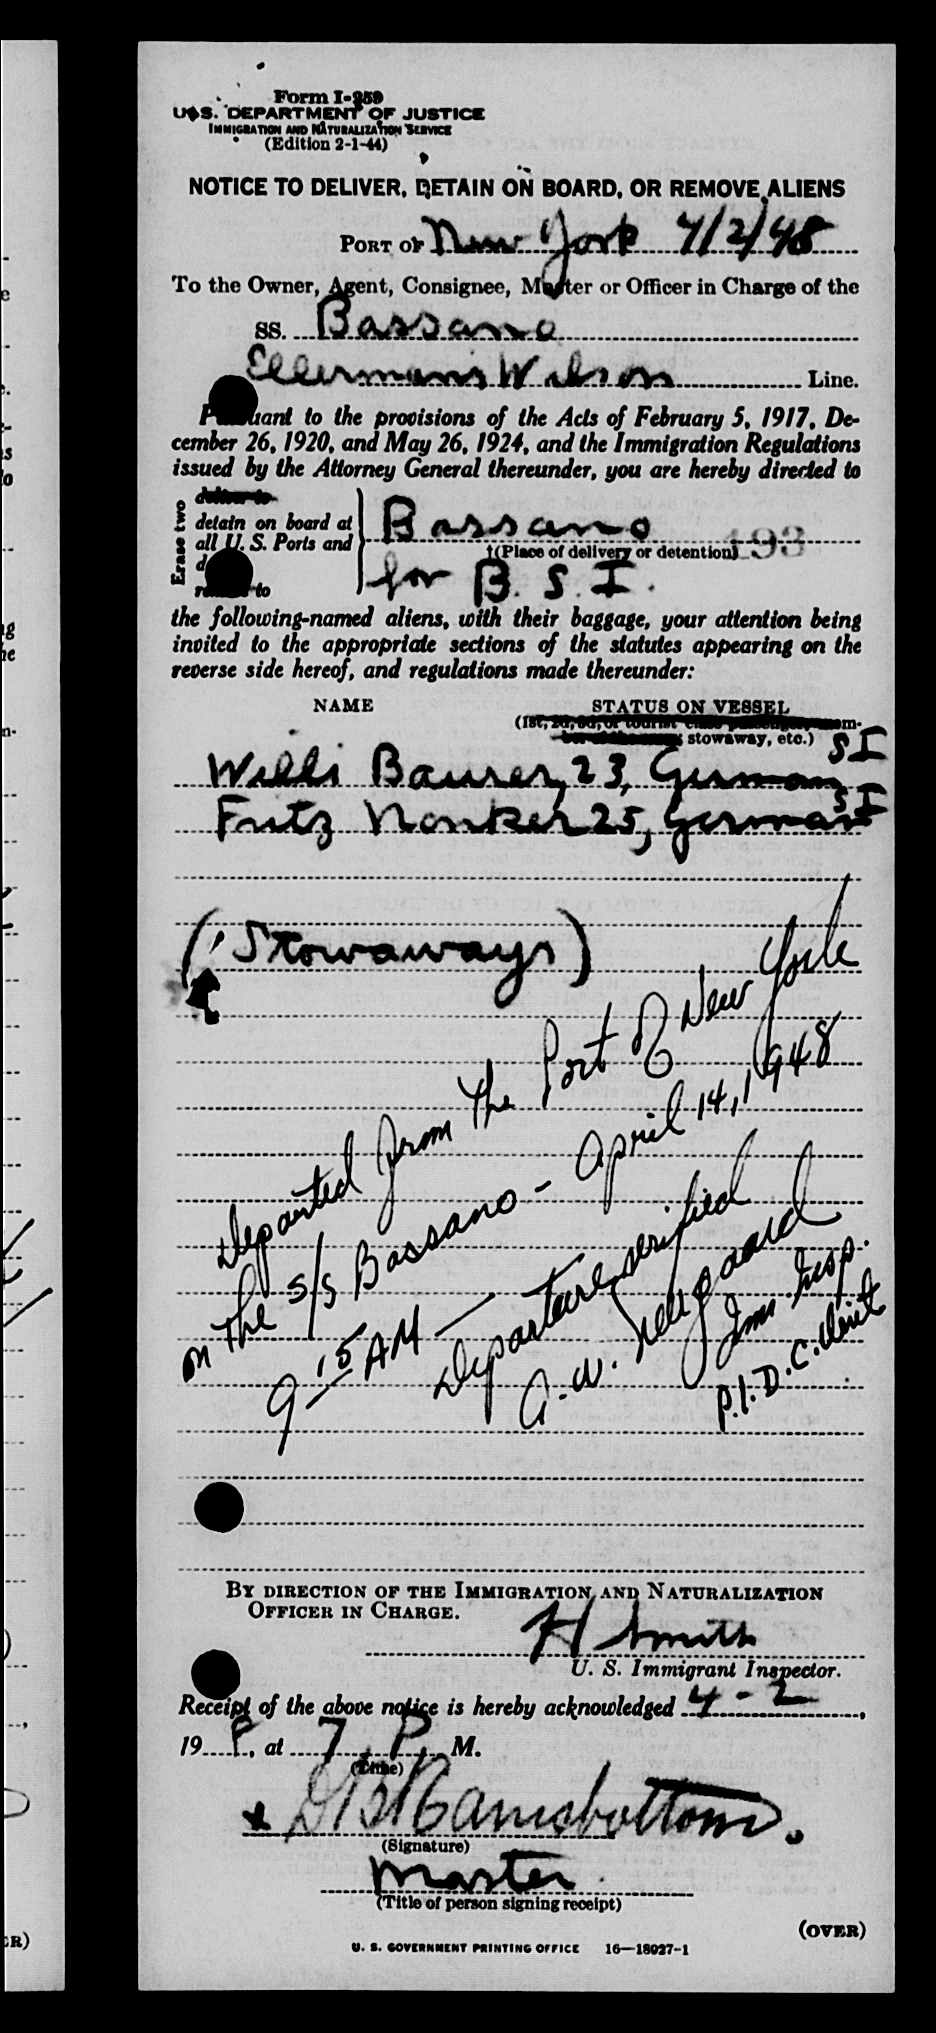 Form I-259
U. S. DEPARTMENT OF JUSTICE
IMMIGRATION AND NATURALIZATION SERVICE
(Edition 2-1-44)
NOTICE TO DELIVER, DETAIN ON BOARD, OR REMOVE ALIENS
PORT OF New York 4/2/48
To the Owner, Agent, Consignee, Master or Officer in Charge of the
SS. Bassano
Ellerman's Wilson Line.
Pursuant to the provisions of the Acts of February 5, 1917, De-
cember 26, 1920, and May 26, 1924, and the Immigration Regulations
issued by the Attorney General thereunder, you are hereby directed to
Erase two
deliver to
detain on board at
all U. S. Ports and
Bassano
193
†(Place of delivery or detention)
to
for B. S. I.
the following-named aliens, with their baggage, your attention being
invited to the appropriate sections of the statutes appearing on the
reverse side hereof, and regulations made thereunder:
NAME STATUS ON VESSEL
(1st, 2d, 3d, or tourist class passenger, mem-
ber of the crew, stowaway, etc.)
Willi Baurer, 23, German SI
Fritz Nonker 25, German SI
(Stowaways)
Departed from the Port of New York
on the S/S Bassano - April 14, 1948
9 15 AM —
Departure verified
A. W. Neugaard
Imm Insp.
P.I.D.C. Unit
BY DIRECTION OF THE IMMIGRATION AND NATURALIZATION
OFFICER IN CHARGE.
H Smith
U. S. Immigrant Inspector.
Receipt of the above notice is hereby acknowledged 4-2,
19 8, at 7 P. M.
(Time)
x D B Ramsbottom.
(Signature)
Master
(Title of person signing receipt)
(OVER)
U. S. GOVERNMENT PRINTING OFFICE 16—18027-1